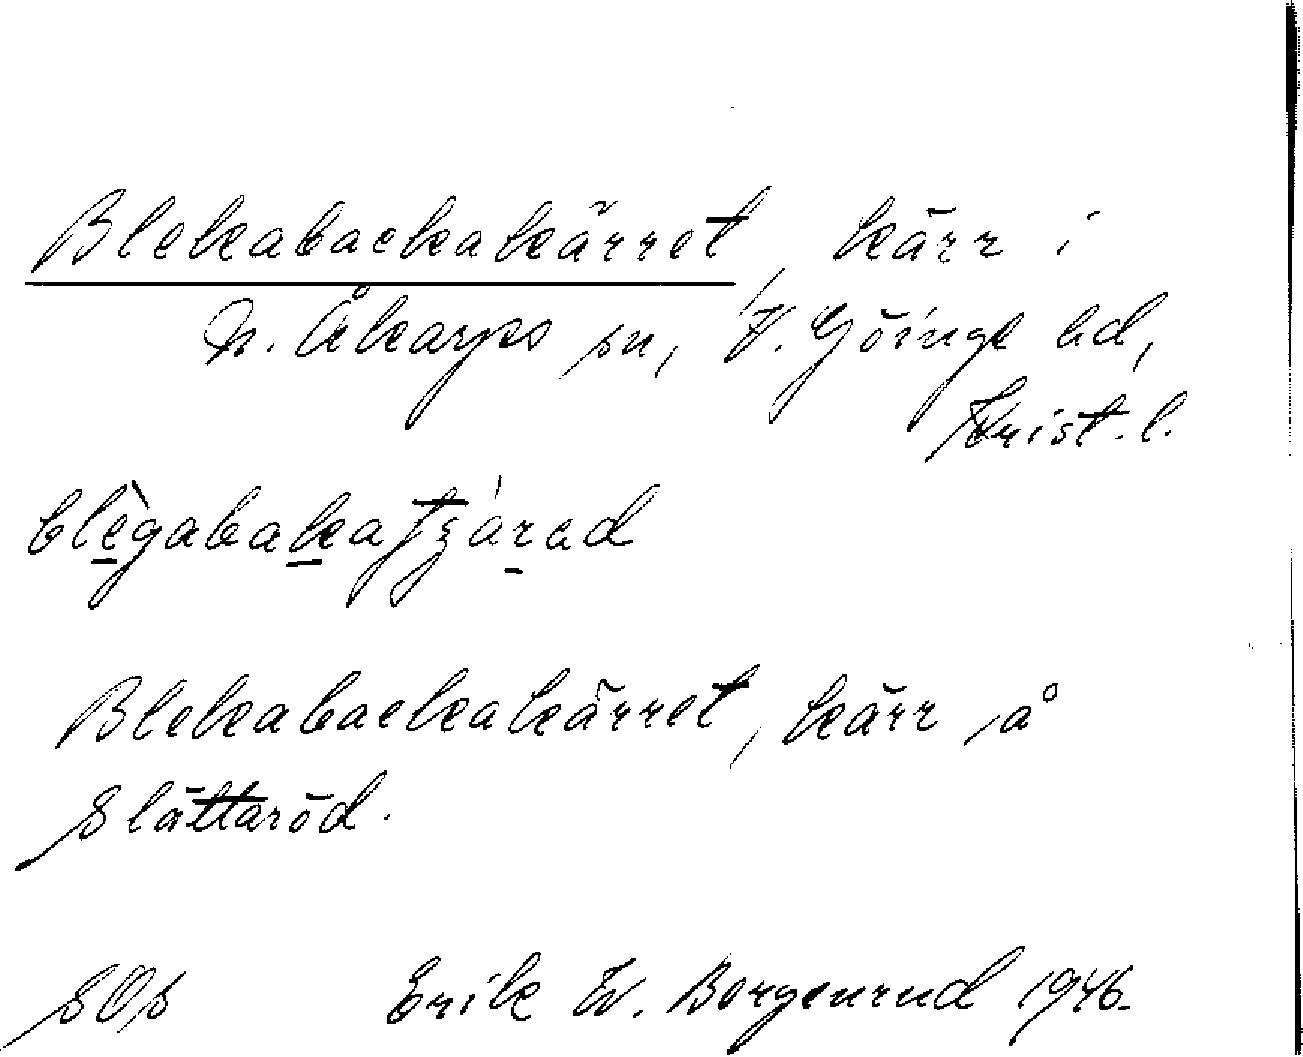 Blekabackakärret, kärr i
N. Åkarps sn, V. Göinge hd,
Krist. l.
Blekabackakärret, kärr å
Slättaröd.
SOS Erik W. Borgenrud 1946